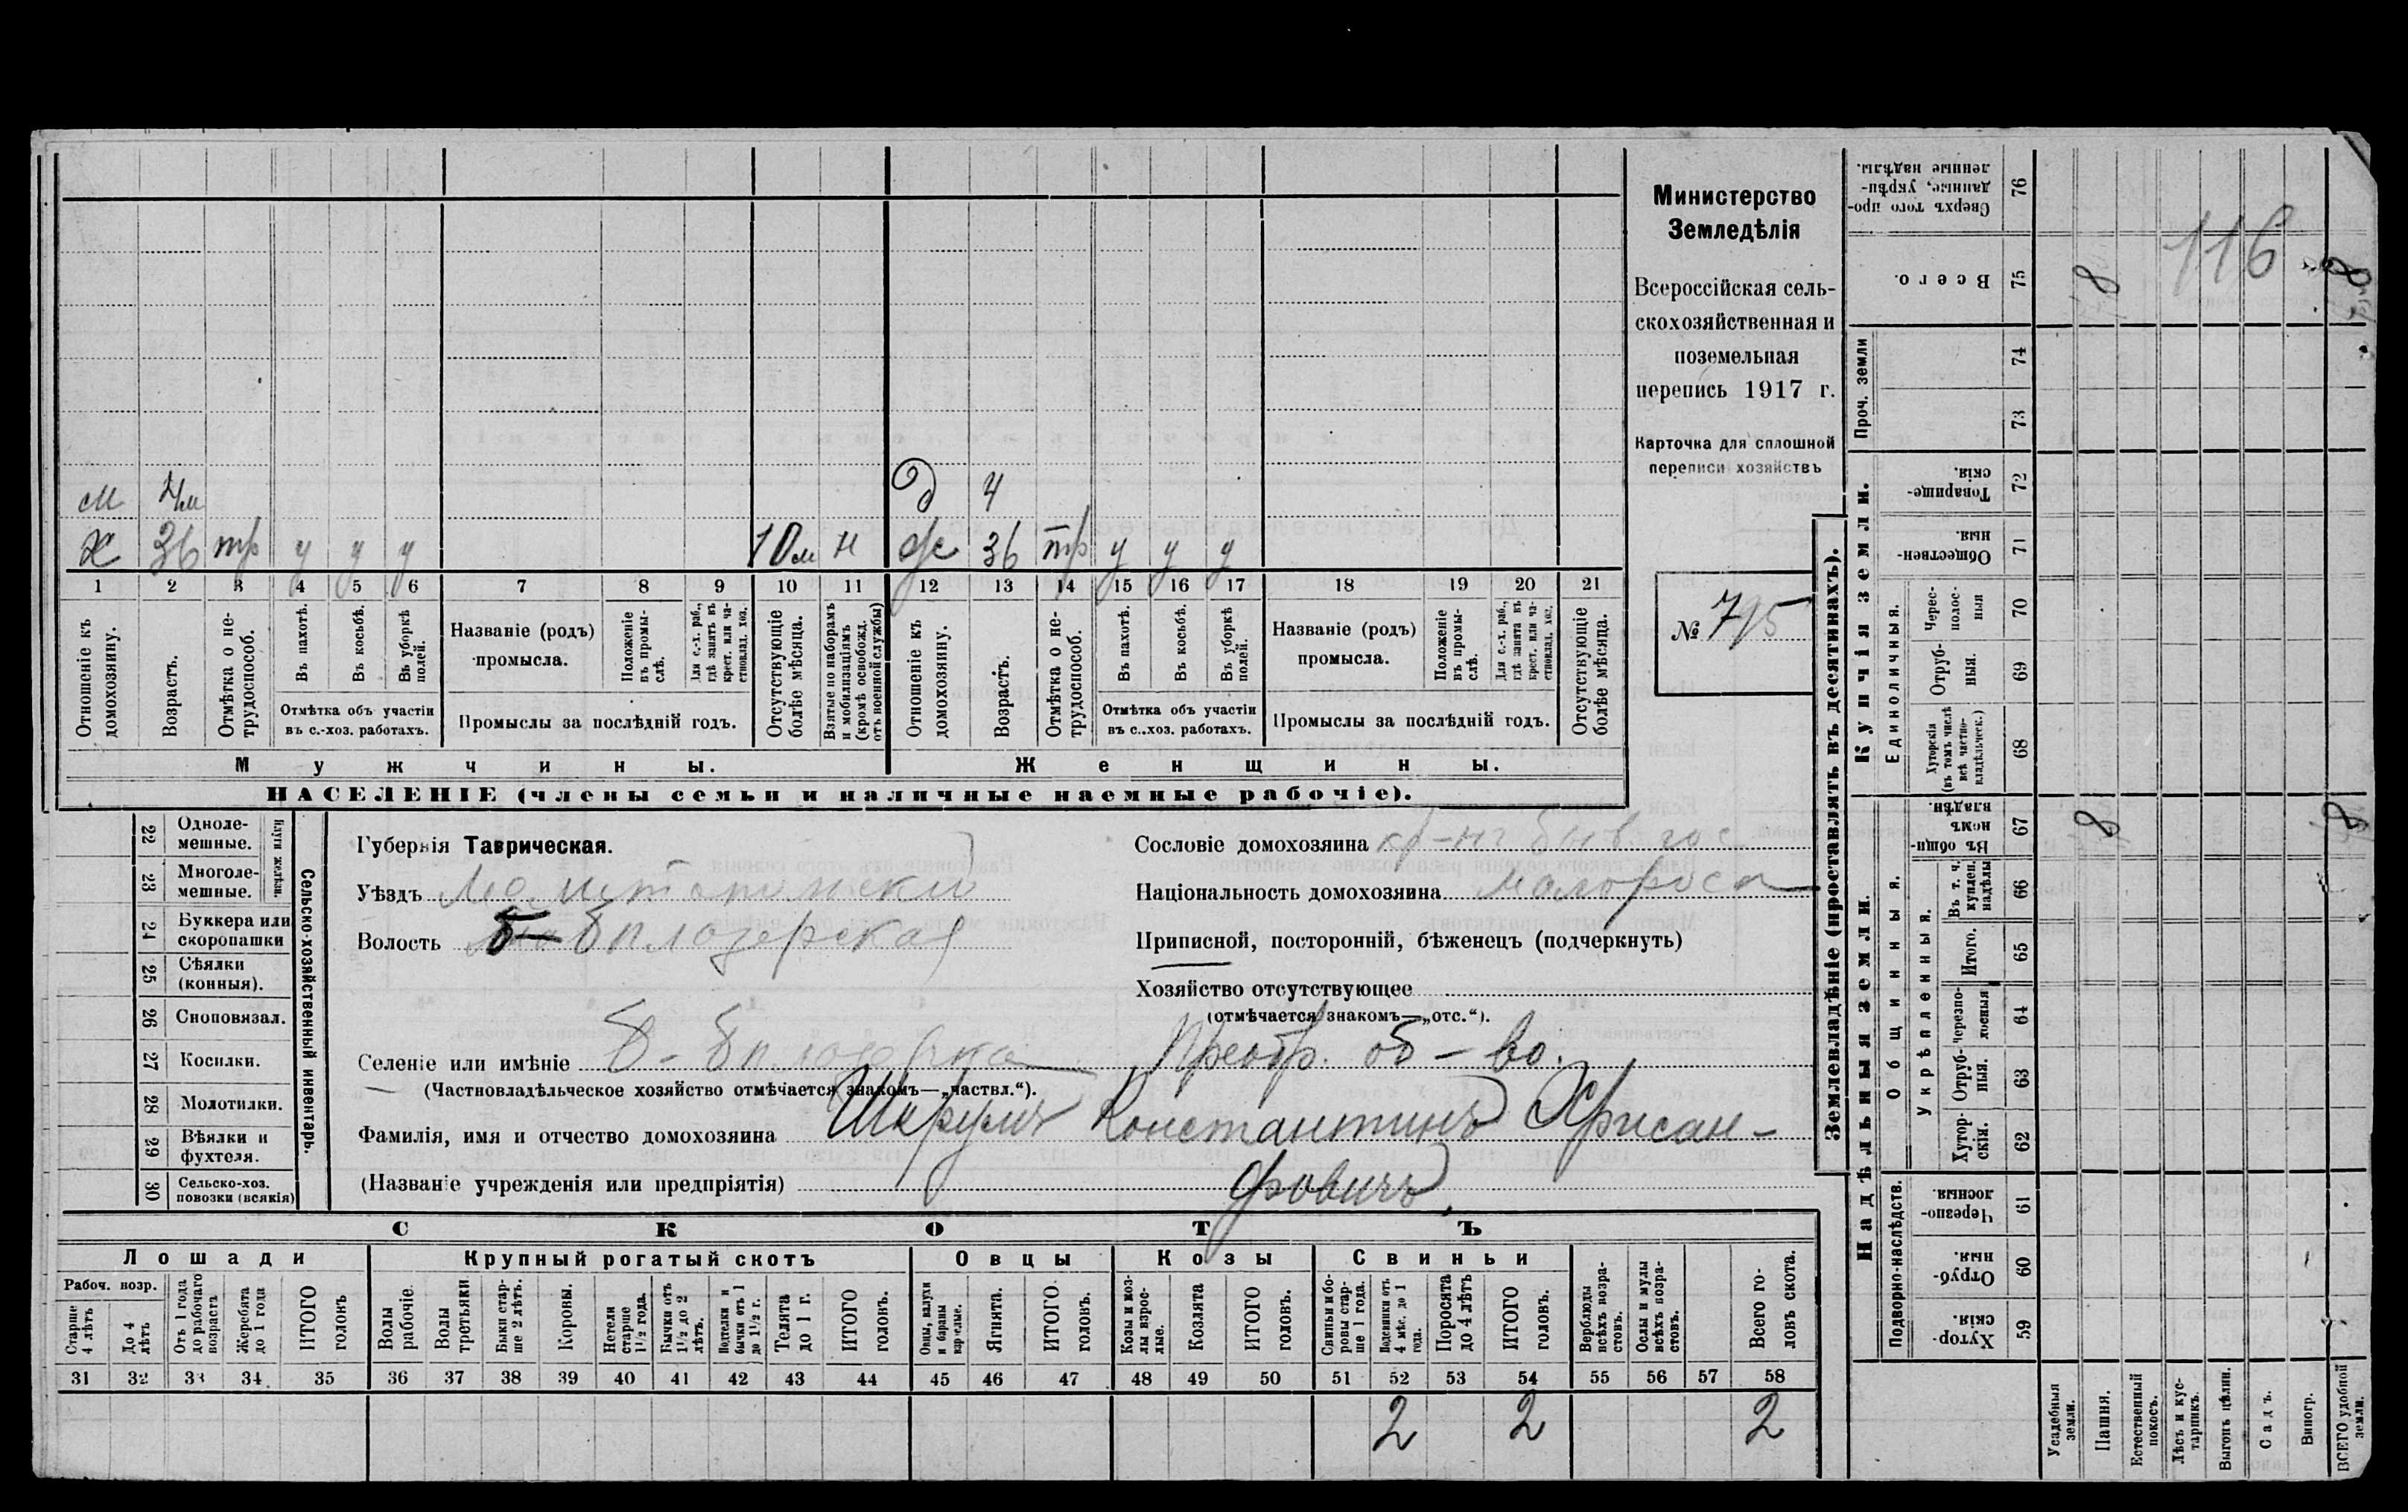 Министерство
Земледѣлія
Всероссійская сель-
скохозяйственная и
поземельная
перепись 1917 г.
Карточка для сплошной
переписи хозяйствъ
№ 795
м 4м Д 4
Х 36 тр у у у 10м н ж 36 тр у у у
1 2 3 4 5 6 7 8 9 10 11 12 13 14 15 16 17 18 19 20 21
Отношеніе къ домохозяину.
Возрастъ.
Отмѣтка о не-трудоспособ.
Въ пахотѣ.
Въ косьбѣ.
Въ уборкѣ полей.
Отмѣтка объ участіи
въ с.-хоз. работахъ.
Названіе (родъ)
промысла.
Положеніе въ промы-слѣ.
Для с.-х. раб., гдѣ занятъ въ крест. или ча-стновлад. хоз.
Промыслы за послѣдній годъ.
Отсутствующіе болѣе мѣсяца.
Взятые по наборамъ и мобилизаціямъ (кромѣ освобожд. отъ военной службы)
Отношеніе къ домохозяину.
Возрастъ.
Отмѣтка о не-трудоспособ.
Въ пахотѣ.
Въ косьбѣ.
Въ уборкѣ полей.
Отмѣтка объ участіи
въ с..хоз. работахъ.
Названіе (родъ)
промысла.
Положеніе въ промы-слѣ.
Для с.-х. раб., гдѣ занята въ крест. или ча-стновлад. хоз.
Промыслы за послѣдній годъ.
Отсутствующіе болѣе мѣсяца.
Мужчины. Женщины.
НАСЕЛЕНІЕ (члены семьи и наличные наемные рабочіе).
Сельско-хозяйственный инвентарь.
Плуги желѣзн.
22 Одноле-мешные.
23 Многоле-мешные.
24 Буккера или скоропашки
25 Сѣялки (конныя).
26 Сноповязал.
27 Косилки.
28 Молотилки.
29 Вѣялки и фухтеля.
30 Сельско-хоз. повозки (всякія)
Губернія Таврическая.
Уѣздъ Мелитопольскій
Волость Б-Бѣлозерская
Селеніе или имѣніе Б-Бѣлозерка Преобр. об-во.
(Частновладѣльческое хозяйство отмѣчается знакомъ—„частвл.“).
Фамилія, имя и отчество домохозяина Константинъ Хрисан-
(Названіе учрежденія или предпріятія) фовичъ
Сословіе домохозяина кр-нъ быв. гос
Національность домохозяина малоросъ
Приписной, посторонній, бѣженецъ (подчеркнуть)
Хозяйство отсутствующее
(отмѣчается знакомъ—„отс.“).
СКОТЪ
Лошади Крупный рогатый скотъ Овцы Козы Свиньи
Рабоч. возр.
Старше 4 лѣтъ
До 4 лѣтъ
Отъ 1 года до рабочаго возраста
Жеребята до 1 года
ИТОГО головъ
Волы рабочіе.
Волы третьяки
Быки стар-ше 2 лѣтъ.
Коровы.
Нетели старше 1½ года.
Бычки отъ 1½ до 2 лѣтъ.
Подтелки и бычки отъ 1 до 1½ г.
Телята до 1 г.
ИТОГО головъ.
Овцы, валухи и бараны взрослые.
Ягнята.
ИТОГО головъ.
Козы и коз-лы взрос-лые.
Козлята
ИТОГО головъ.
Свиньи и бо-ровы стар-ше 1 года.
Подсвинки отъ 4 мѣс. до 1 года.
Поросята до 4 лѣтъ
ИТОГО головъ.
Верблюды всѣхъ возра-стовъ.
Ослы и мулы всѣхъ возра-стовъ.
Всего го-ловъ скота.
31 32 33 34 35 36 37 38 39 40 41 42 43 44 45 46 47 48 49 50 51 52 53 54 55 56 57 58
2 2 2
Землевладѣніе (проставлять въ десятинахъ).
Надѣльныя земли. Купчія земли.
Проч. земли
Подворно-наслѣдств.
Общинныя.
Укрѣпленныя.
Единоличныя.
Сверхъ того про-данные, укрѣп-ленные надѣлы. 76
Всего. 75 8 116 8
74
73
Товарище-скія. 72
Обществен-ныя. 71
Черес-полос-ныя 70
Отруб-ныя. 69
Хуторскія (въ томъ числѣ всѣ частно-владѣльческ.) 68
Въ общи-номъ владѣн. 67 8 8
Въ т. ч. куплен. надѣлы 66
Итого. 65
Черезпо-лосныя 64
Отруб-ныя. 63
Хутор-скія. 62
Черезпо-лосныя. 61
Отруб-ныя. 60
Хутор-скія. 59
Усадебныя земли.
Пашня.
Естественный покосъ.
Лѣсъ и кус-тарникъ.
Выгонъ цѣлин.
Садъ.
Виногр.
ВСЕГО удобной земли.